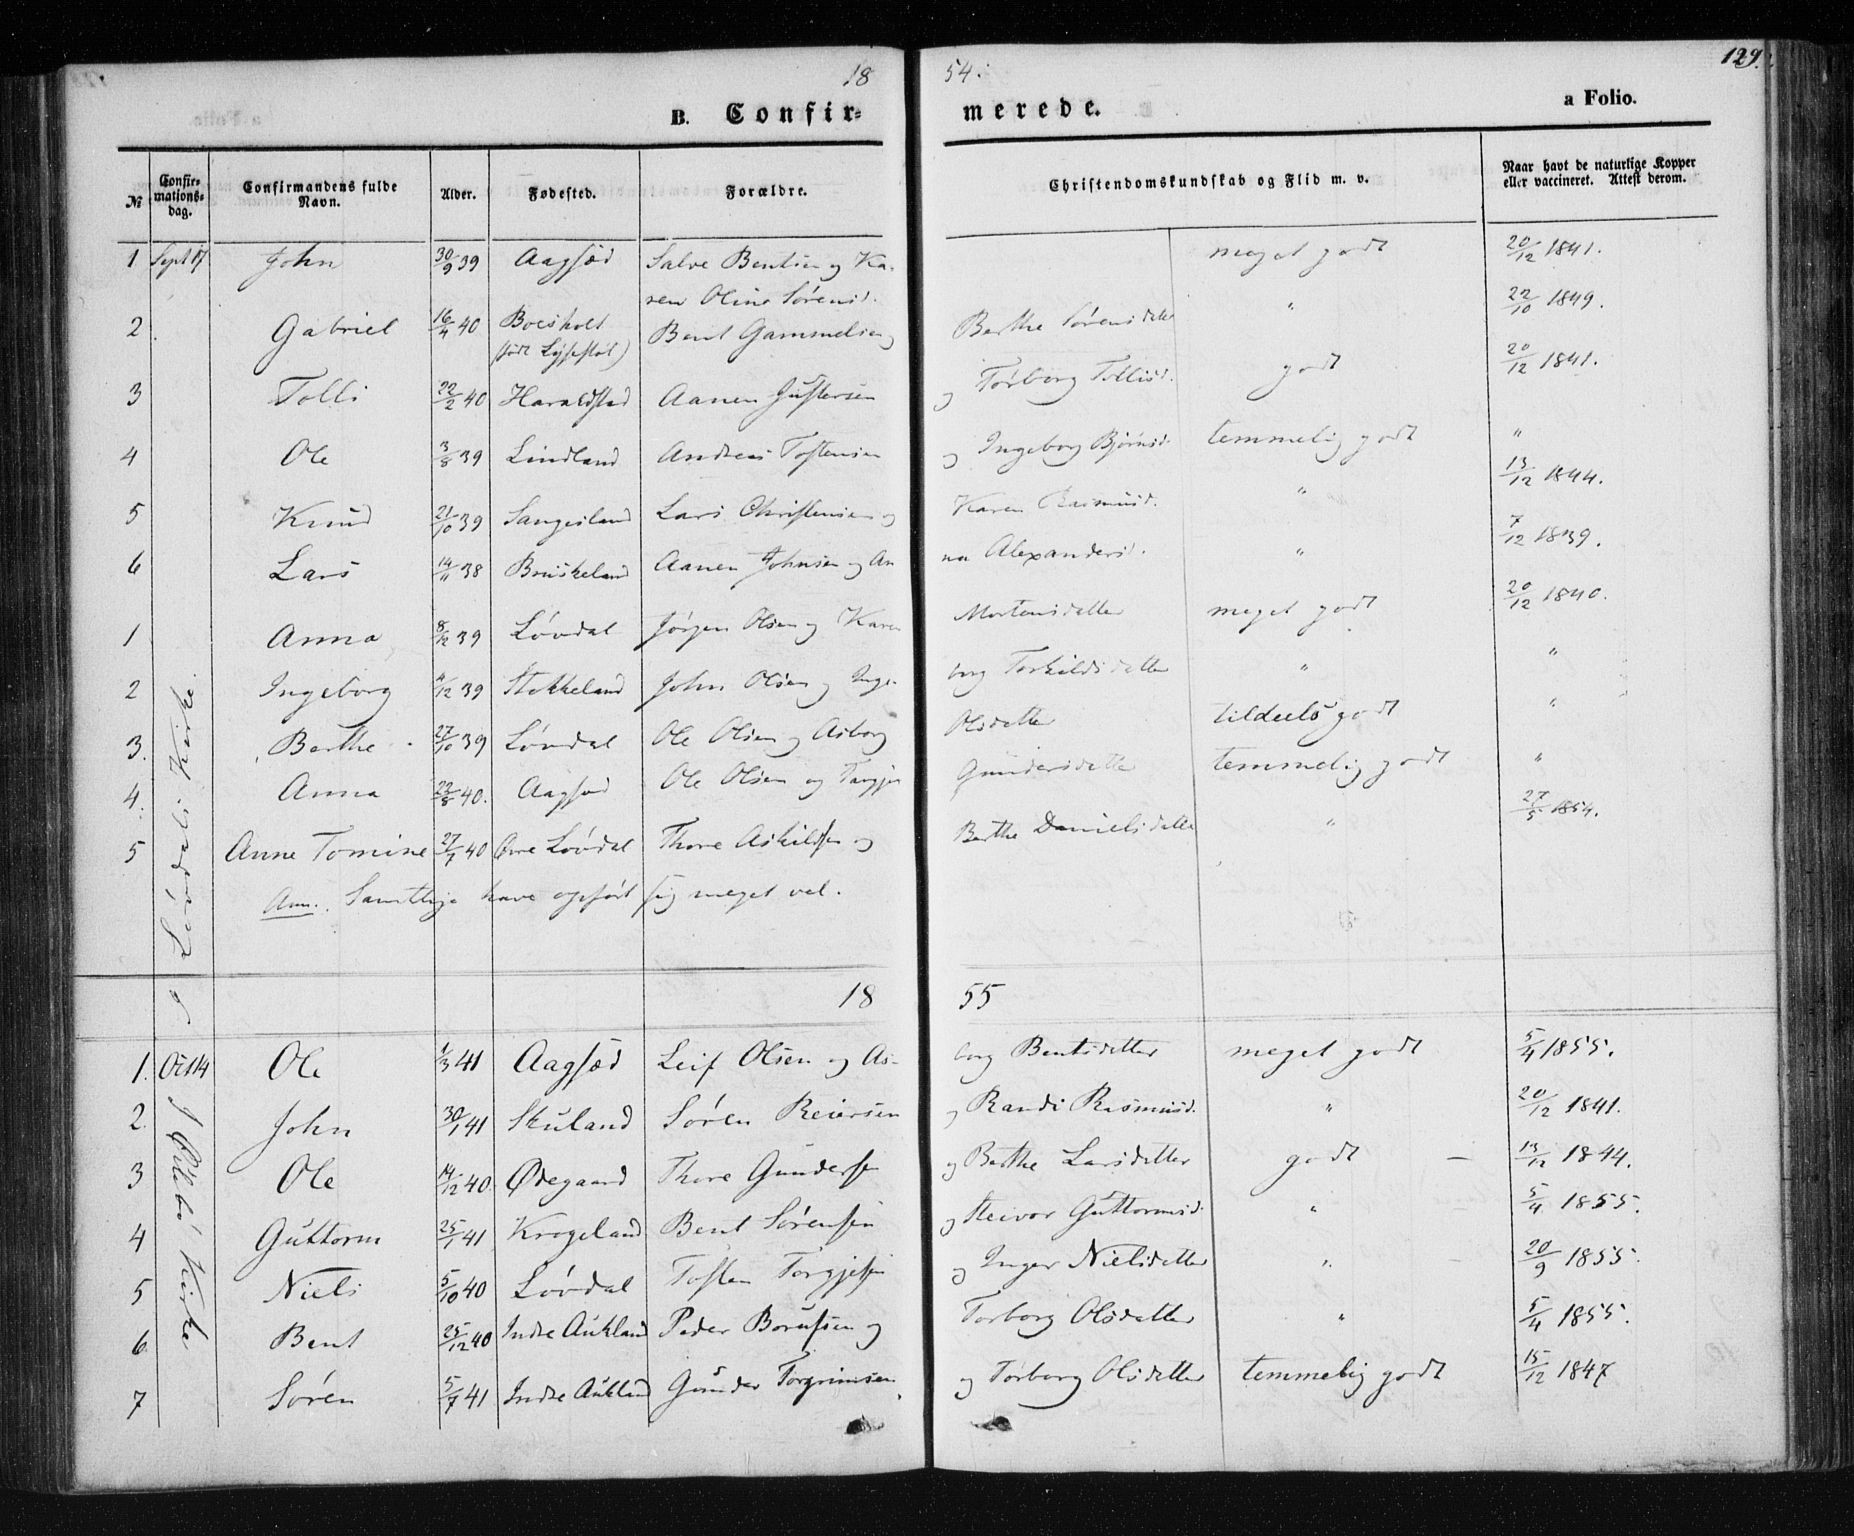 18 54. 129.
B. Confirmerede. a Folio.
№ Confirmationsdag. Confirmandens fulde Navn. Alder. Fødested. Forældre. Christendomskundskab og Flid m. v. Naar havt de naturlige Kopper eller vaccineret. Attest derom.
1 Sept 17 John 30/9 39 Aagsæd Salve Bentsen og Karen Oline Sørensd. meget godt 20/12 1841.
2 Gabriel 16/4 40 Boesholt (født Lysestøl) Bent Gammelsen og Berthe Sørensdatter " 22/10 1849.
3 Tolli 22/2 40 Haraldstad Aanen Gustersen og Torborg Tollisd. godt 20/12 1841.
4 Ole 3/8 39 Lindland Andreas Tostensen og Ingeborg Bjørnsd. temmelig godt "
5 Knud 21/10 39 Sangesland Lars Christensen og Karen Rasmusd. " 13/12 1844.
6 Lars 14/11 38 Bruskeland Aanen Johnsen og Anna Alexandersd. " 7/12 1839.
1 Anna 8/12 39 Løvdal Jørgen Olsen og Karen Mortensdatter meget godt 20/12 1840.
2 Ingeborg /12 39 Stokkeland John Olsen og Ingeborg Torkildsdatter " "
3. Berthe 27/10 39 Løvdal Ole Olsen og Asborg Olsdatter tildeels godt "
4. Anna 22/8 40. Aagsæd Ole Olsen og Targjer Gundersdatter temmelig godt "
5 Anne Tomine 27/7 40 Øvre Løvdal Thore Askildsen og Berthe Danielsdatter " 27/5 1854.
Anm. Samtlige have opført sig meget vel.
i Løvdals Kirke
18 55
1. Oct 14 Ole 1/3 41 Aagsæd Leif Olsen og Asborg Bentsdatter meget godt 5/4 1855.
2. John 30/1 41 Skuland Søren Reiersen og Randi Rasmusd. " 20/12 1841.
3 Ole 14/12 40. Ødegaard Thore Gundersen og Berthe Larsdatter godt – 13/12 1844.
4 Guttorm 25/1 41 Krogeland Bent Sørensen og Steivor Guttormsd. " 5/4 1855.
5 Niels 5/10 40 Løvdal Tosten Torgjesen og Inger Nielsdatter " 20/9 1855.
6 Bent 25/12 40 Indre Aukland Peder Borufsen og Torborg Olsdatter " 5/4 1855.
7 Søren 5/7 41 Indre Aukland Gunder Torgrimsen og Torborg Olsdatter temmelig godt 15/12 1847
I Øislebø Kirke